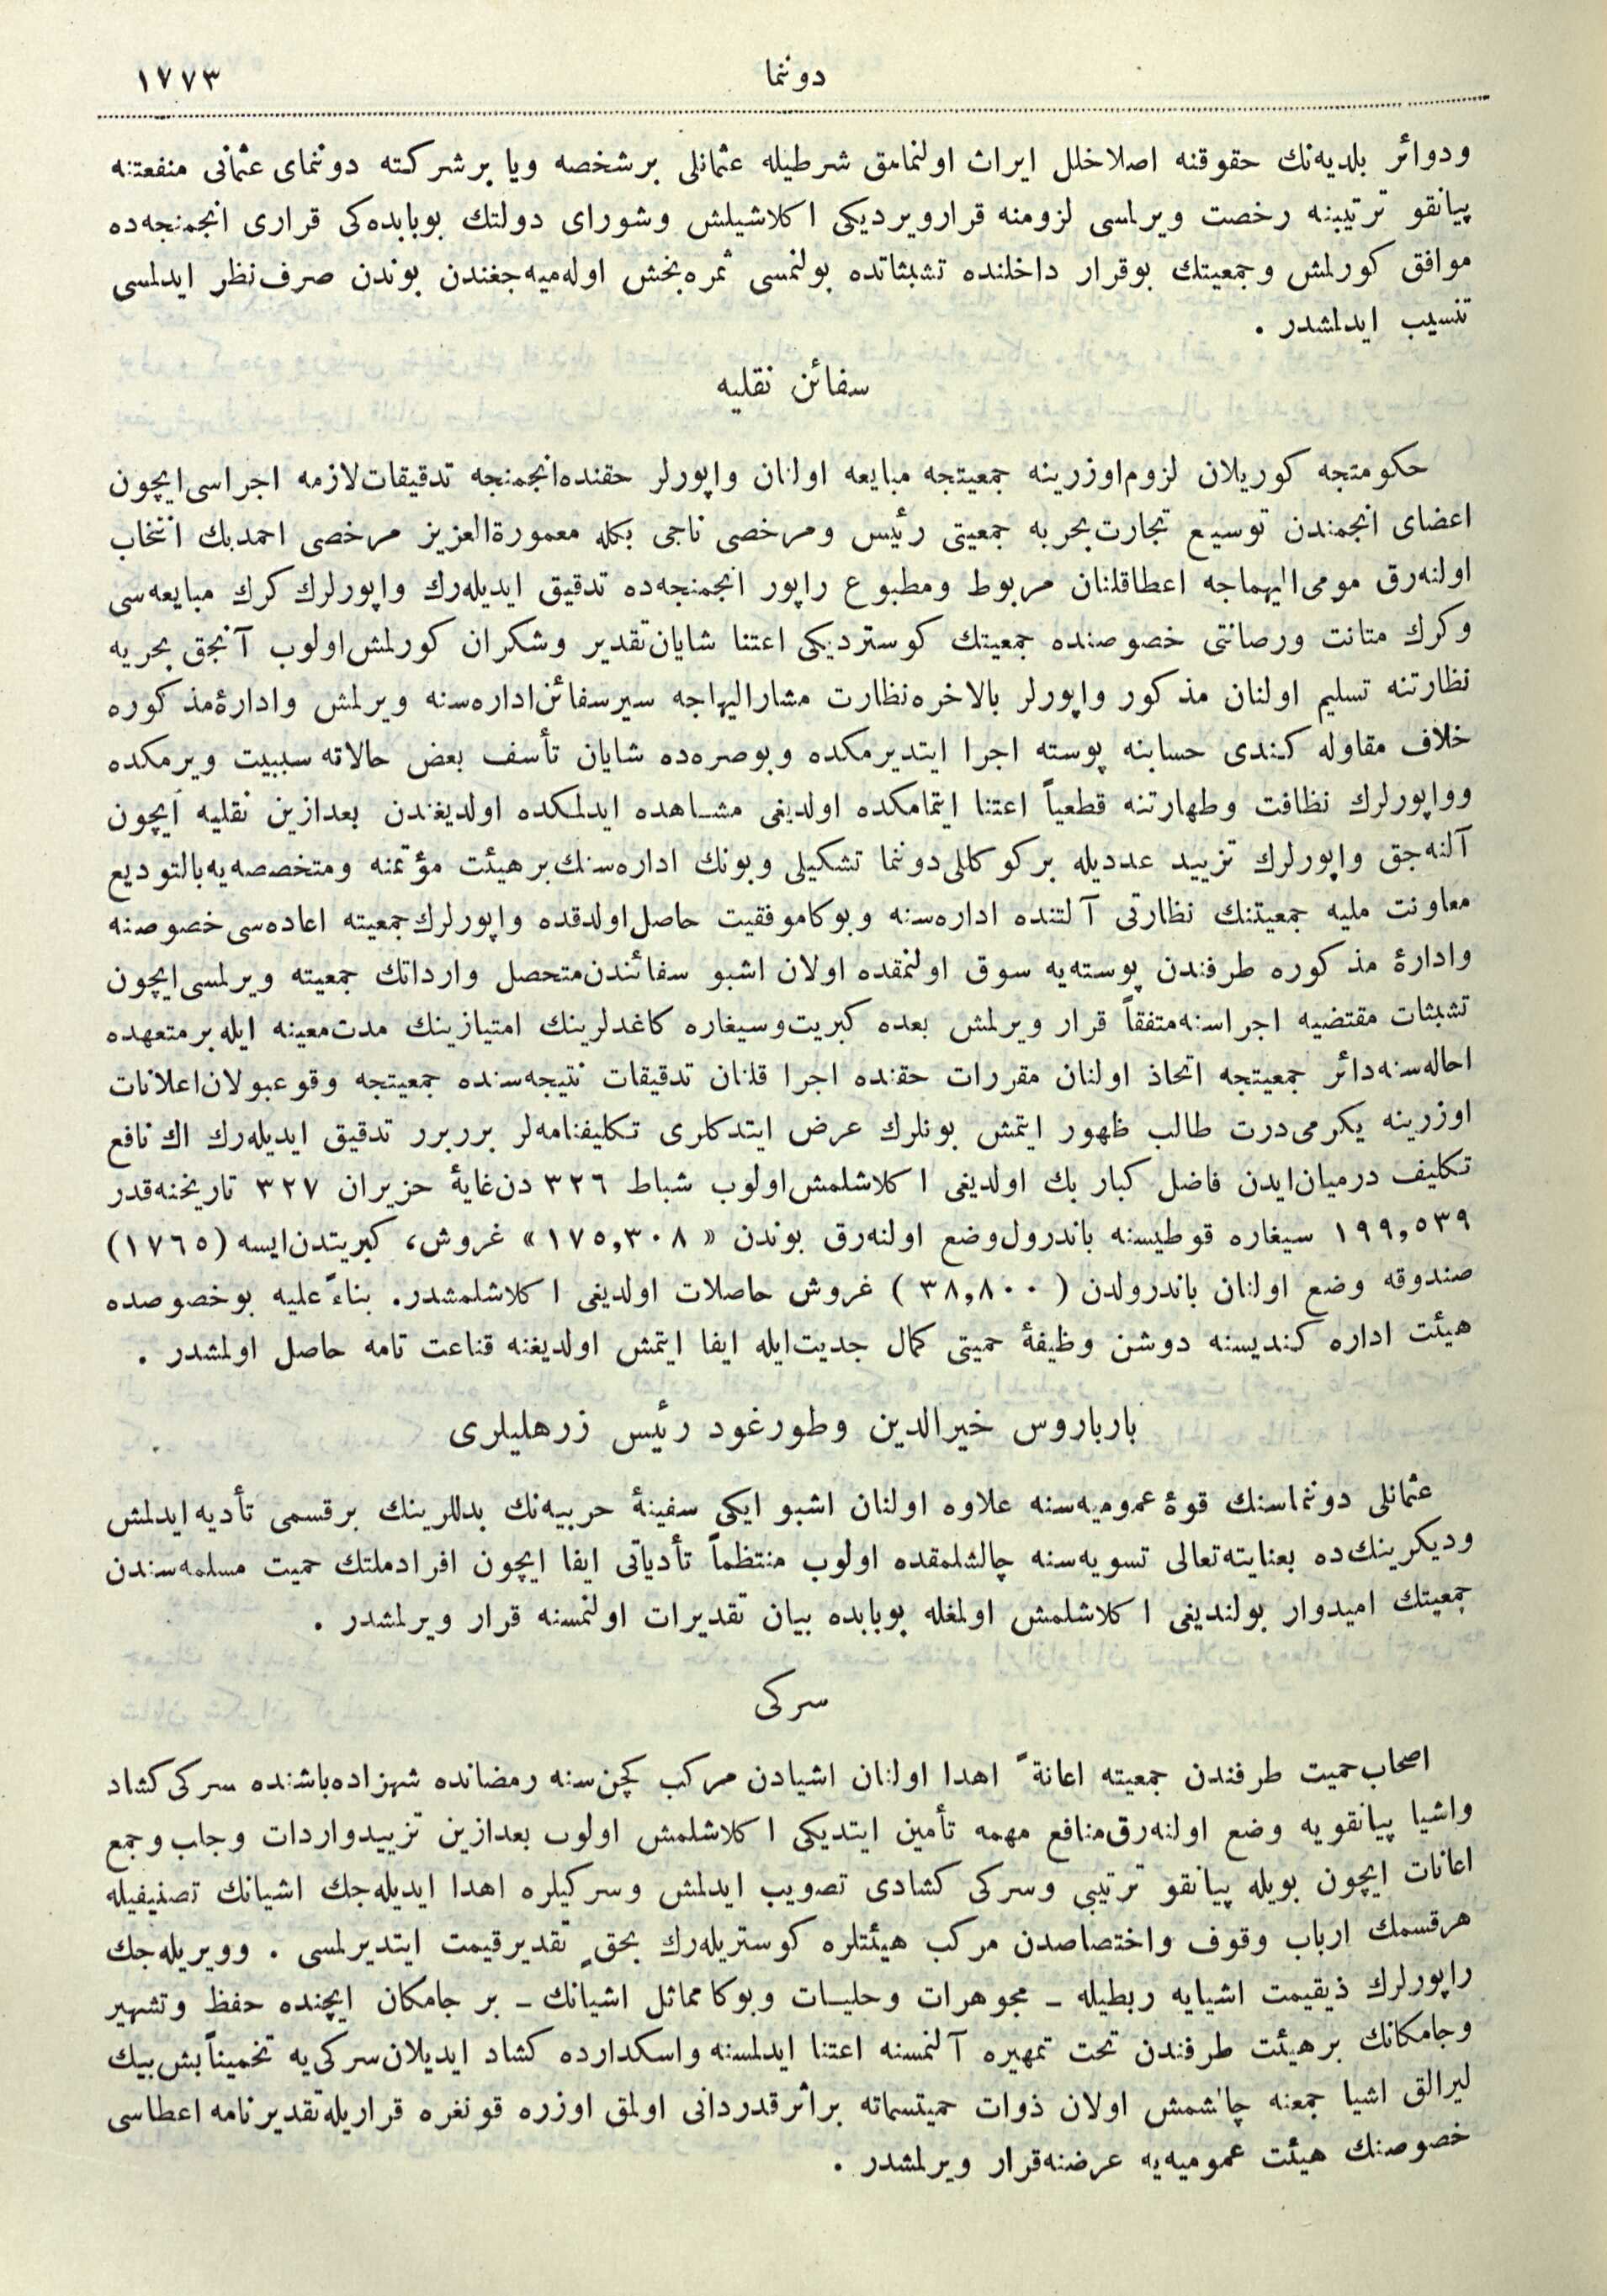 دوننما
١٧٧٣
ودوائر بلديه‌نك حقوقنه اصلا خلل ايراث اولنمامق شرطيله عثمانلى بر شخصه ويا بر شركته دوننماى عثمانى منفعتنه
پيانقو ترتيبنه رخصت ويرلمسى لزومنه قرار ويرديكى ا كلاشيلمش وشوراى دولتك بوبابده‌كى قرارى انجمنجه‌ده
موافق كورلمش وجمعيتك بوقرار داخلنده تشبثاتده بولنمسى ثمره‌بخش اوله‌ميه‌جغندن بوندن صرف‌نظر ايدلمسى
تنسيب ايدلمشدر .
سفائن نقليه
حكومتجه كوريلان لزوم‌اوزرينه جمعيتجه مبايعه اولنان واپورلر حقنده‌انجمنجه تدقيقات‌لازمه اجراسى‌ايچون
اعضاى انجمندن توسيع تجارت‌بحريه جمعيتى رئيس ومرخصى ناجى بكله معمورةالعزيز مرخصى احمدبك انتخاب
اولنه‌رق مومى‌اليهماجه اعطاقلنان مربوط ومطبوع راپور انجمنجه‌ده تدقيق ايديله‌رك واپورلرك كرك مبايعه‌سى
وكرك متانت ورصانتى خصوصنده جمعيتك كوسترديكى اعتنا شايان‌تقدير وشكران كورلمش‌اولوب آنجق بحريه
نظارتنه تسليم اولنان مذكور واپورلر بالاخره‌نظارت مشاراليهاجه سيرسفائن‌اداره‌سنه ويرلمش وادارۀ‌مذكوره
خلاف مقاوله كندى حسابنه پوسته اجرا ايتديرمكده وبوصره‌ده شايان تأسف بعض حالاته سببيت ويرمكده
وواپورلرك نظافت وطهارتنه قطعياً اعتنا ايتمامكده اولديغى مشاهده ايدلمكده اولديغندن بعدازين نقليه ايچون
آلنه‌جق واپورلرك تزييد عدديله بر كوكللى‌دوننما تشكيلى وبونك اداره‌سنك‌برهيئت مؤتمنه ومتخصصه‌يه‌بالتوديع
معاونت مليه جمعيتنك نظارتى آلتنده اداره‌سنه وبوكاموفقيت حاصل‌اولدقده واپورلرك‌جمعيته اعاده‌سى خصوصنه
وادارۀ مذكوره طرفندن پوسته‌يه سوق اولنمقده اولان اشبو سفائندن‌متحصل وارداتك جمعيته ويرلمسى‌ايچون
تشبثات مقتضيه اجراسنه‌متفقاً قرار ويرلمش بعده كبريت‌وسيغاره كاغدلرينك امتيازينك مدت‌معينه ايله‌برمتعهده
احاله‌سنه‌دائر جمعيتجه اتخاذ اولنان مقررات حقنده اجرا قلنان تدقيقات نتيجه‌سنده جمعيتجه وقوعبولان‌اعلانات
اوزرينه يكرمى‌درت طالب ظهور ايتمش بونلرك عرض ايتدكلرى تكليفنامه‌لر برربرر تدقيق ايديله‌رك اك نافع
تكليف درميان‌ايدن فاضل كبار بك اولديغى ا كلاشلمش‌اولوب شباط ٣٢٦ دن‌غايۀ حزيران ٣٢٧ تاريخنه‌قدر
١٩٩,٥٣٩ سيغاره قوطيسنه باندرول‌وضع اولنه‌رق بوندن « ١٧٥,٣٠٨ » غروش، كبريتدن‌ايسه (١٧٦٥)
صندوقه وضع اولنان باندرولدن ( ٣٨,٨٠٠ ) غروش حاصلات اولديغى ا كلاشلمشدر. بناءً عليه بوخصوصده
هيئت اداره كنديسنه دوشن وظيفۀ حميتى كمال جديت‌ايله ايفا ايتمش اولديغنه قناعت تامه حاصل اولمشدر .
بارباروس خيرالدين وطورغود رئيس زرهليلرى
عثمانلى دوننماسنك قوۀ عموميه‌سنه علاوه اولنان اشبو ايكى سفينۀ حربيه‌نك بدللرينك برقسمى تأديه ايدلمش
وديكرينك‌ده بعنايته‌تعالى تسويه‌سنه چالشلمقده اولوب منتظماً تأدياتى ايفا ايچون افرادملتك حميت مسلمه‌سندن
جمعيتك اميدوار بولنديغى ا كلاشلمش اولمغله بوبابده بيان تقديرات اولنمسنه قرار ويرلمشدر .
سركى
اصحاب‌حميت طرفندن جمعيته اعانةً اهدا اولنان اشيادن مركب كچن‌سنه رمضانده شهزاده‌باشنده سركى كشاد
واشيا پيانقويه وضع اولنه‌رق‌منافع مهمه تأمين ايتديكى ا كلاشلمش اولوب بعدازين تزييدواردات وجلب وجمع
اعانات ايچون بويله پيانقو ترتيبى وسركى كشادى تصويب ايدلمش وسركيلره اهدا ايديله‌جك اشيانك تصنيفيله
هرقسمك ارباب وقوف واختصاصدن مركب هيئتلره كوستريله‌رك بحقٍ تقديرقيمت ايتديرلمسى . وويريله‌جك
راپورلرك ذيقيمت اشيايه ربطيله – مجوهرات وحليات وبوكا مماثل اشيانك – بر جامكان ايچنده حفظ وتشهير
وجامكانك برهيئت طرفندن تحت تمهيره آلنمسنه اعتنا ايدلمسنه واسكدارده كشاد ايديلان‌سركى‌يه تخميناً بش‌بيك
ليرالق اشيا جمعنه چالشمش اولان ذوات حميتسماته براثرقدردانى اولمق اوزره قونغره قراريله‌تقديرنامه اعطاسى
خصوصنك هيئت عموميه‌يه عرضنه‌قرار ويرلمشدر .